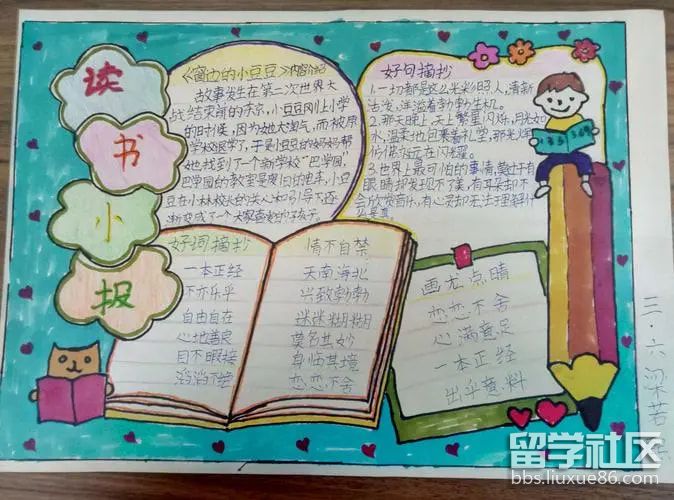 读
书
小
报
《窗边的小豆豆》内容介绍
故事发生在第二次世界大
战结束前的东京,小豆豆刚上小学
的时候,因为她太淘气,而被原
学校退学了,于是小豆豆的妈妈帮
她找到了一个新学校"巴学园"
巴学园的教室是废旧的电车,小豆
豆在小林校长的关心和引导下逐
渐变成了一个大家喜爱的孩子。
好句摘抄
1.一切都是这么光彩照人,清新
活泼,洋溢着勃勃生机。
2.那天晚上,天上繁星闪烁,月光如
水,温柔地包裹着礼堂,那光辉
仿佛永远在闪耀。
3.世界上最可怕的事情,莫过于有
眼睛却发现不了美,有耳朵却不
会欣赏音乐,有心灵却无法理解什
么是真。
好词摘抄
一本正经
不亦乐乎
自由自在
心地善良
目不暇接
滔滔不绝
情不自禁
天南海北
兴致勃勃
迷迷糊糊
莫名其妙
身临其境
恋恋不舍
画龙点睛
恋恋不舍
心满意足
一本正经
出乎意料
三·六梁若
留学社区
bbs.liuxue86.com